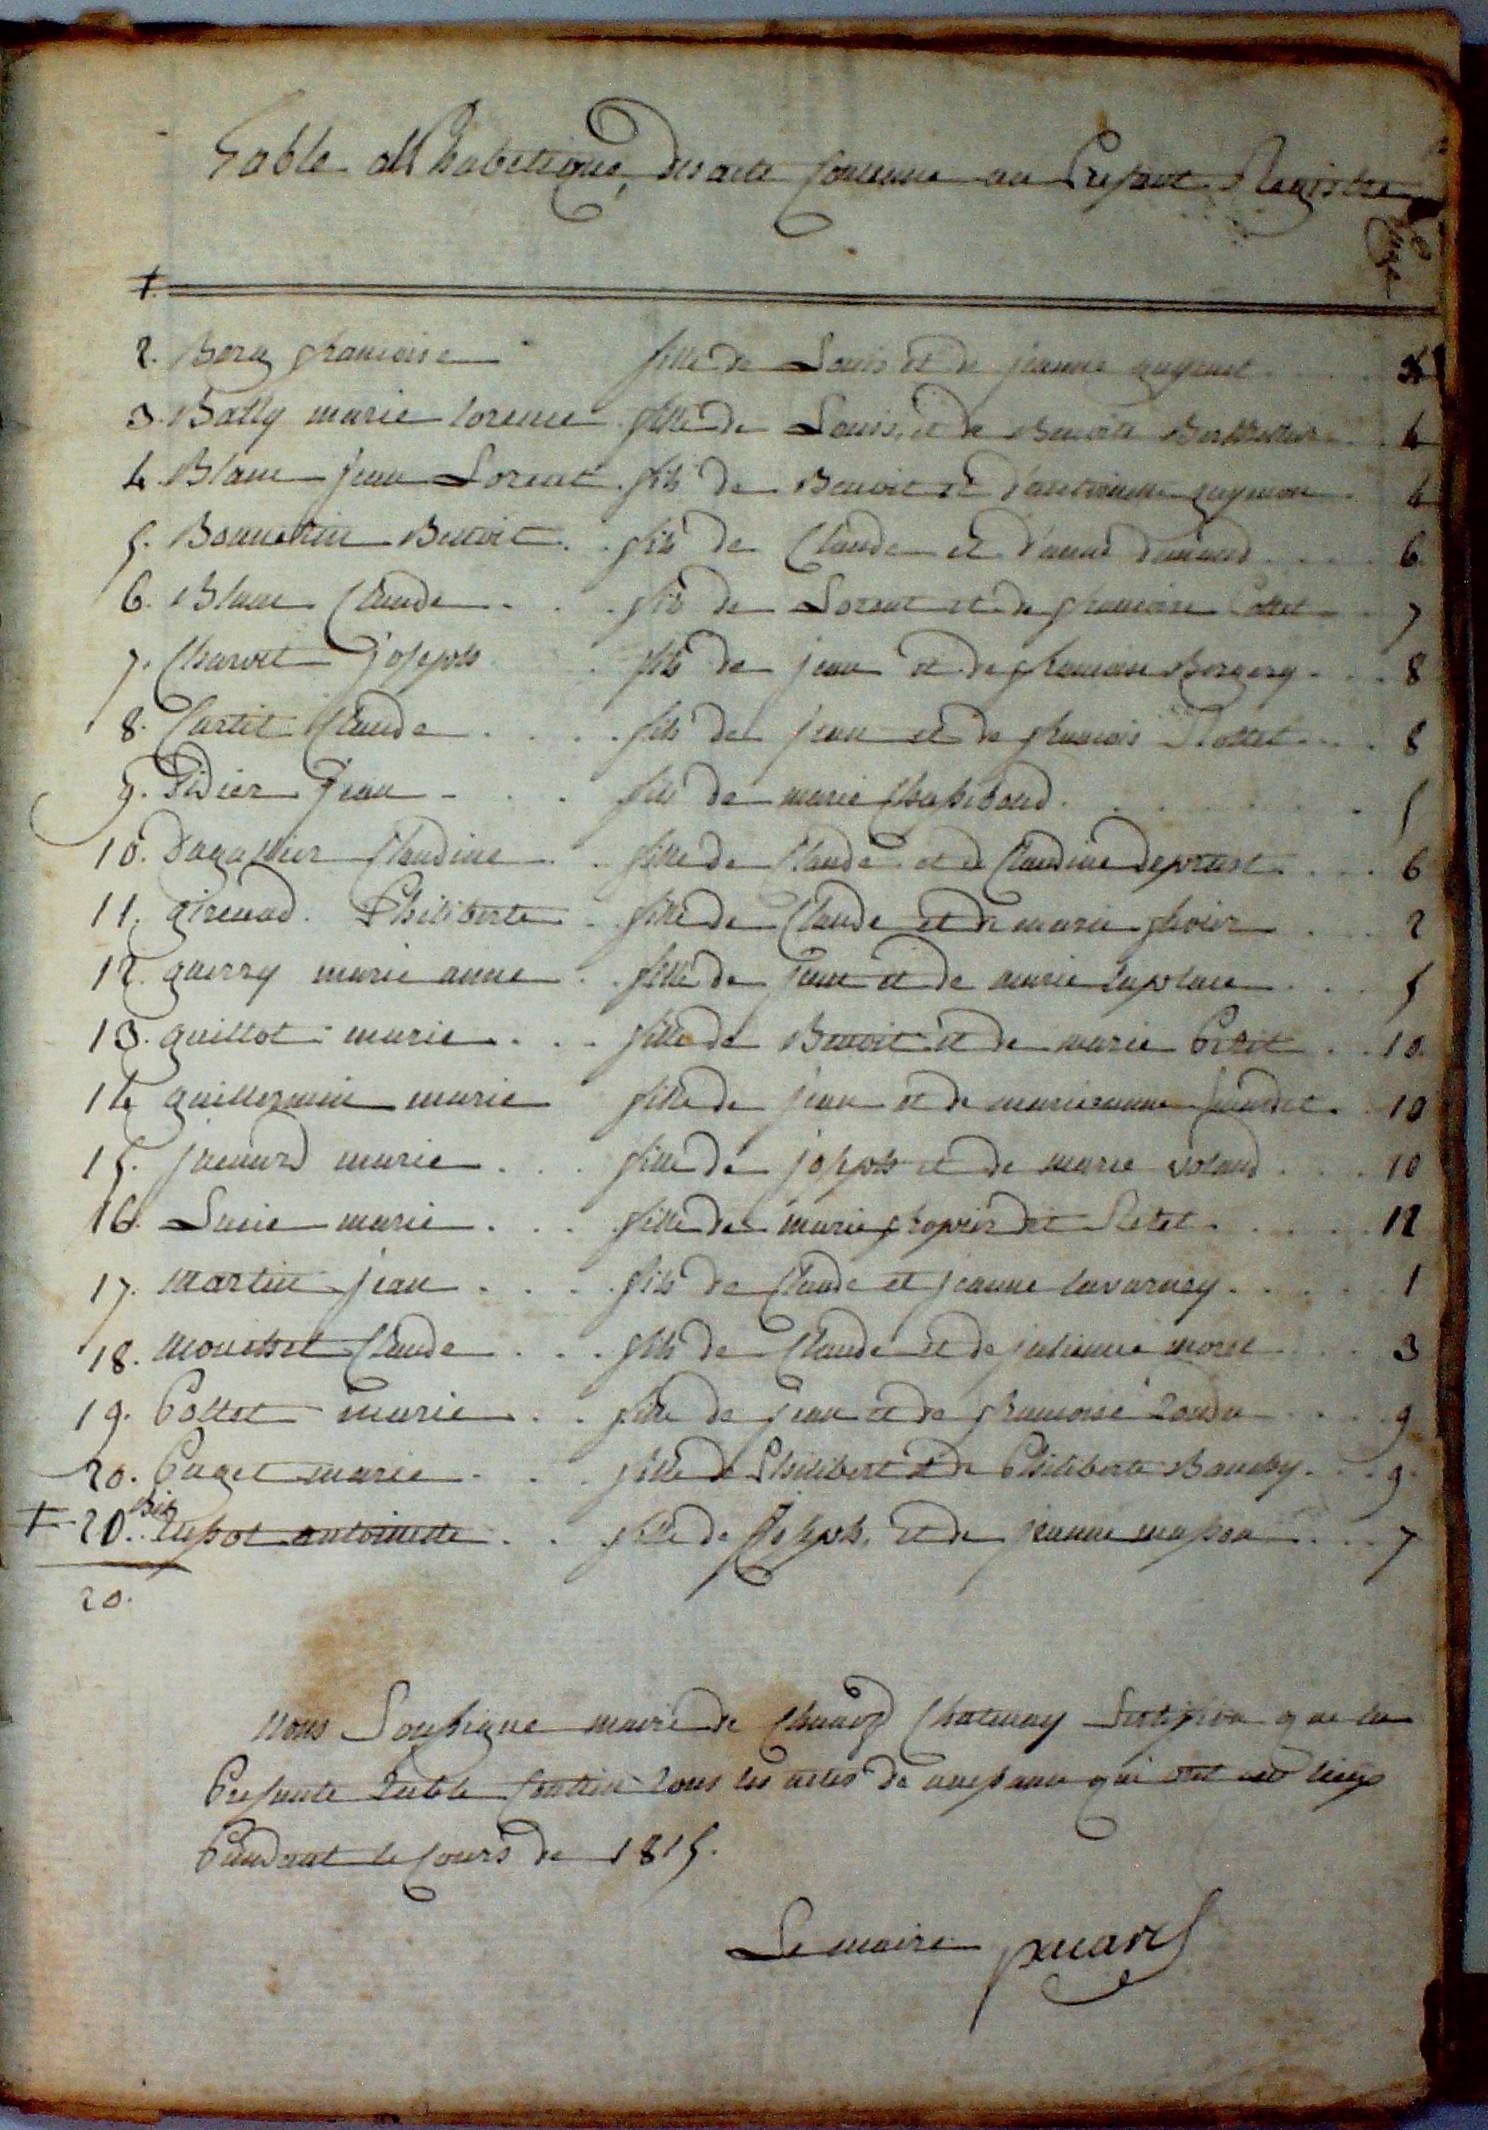 Table alphabetique des acte contenue au present Registre
page
1.
2. Bory francoise fille de Louis et de jeanne guyenet
3. Bally marie lorence fille de Louis, et de Benoite 4
4. Blanc jean Lorent fils de Benoit et d'antoinette guymon 4
5. Bonnetin Benoit fils de Claude et d'anne durand 6
6. Blanc Claude fils de Lorent et de francoise Cottet 7
7. Charvet joseph fils de jean et de francoise Bergery 8
8. Cartet Claude fils de jean et de francois 8
9. Didier jean fils de marie Chapiboud 5
10. Dagallier Claudine fille de Claude et de Claudine 6
11. girenad Philiberte fille de Claude et de marie 2
12. guerry marie anne fille de jean et de marie laplace 5
13. guillot marie fille de Benoit et de marie Petit 10
14 guillermin marie fille de jean et de marieanne 10
15. marie fille de joseph et de marie voland 10
16. Lucie marie fille de marie dit 12
17. martin jean fils de Claude et jeanne lavarney 1
18. Claude fils de Claude et de julienne morel 3
19. Pottet marie fille de jean et de francoise 9
20. Puget marie fille de Philibert et de Philiberte Baudy 9
20. bis antoinette fille de joseph, et de jeanne masson 7
20.
nous Soussigne maire de Chatenay Sertifion que la
Presente Table Contien tous les actes de naissance qui ont eu lieux
Pendant le Cours de 1815.
Le maire